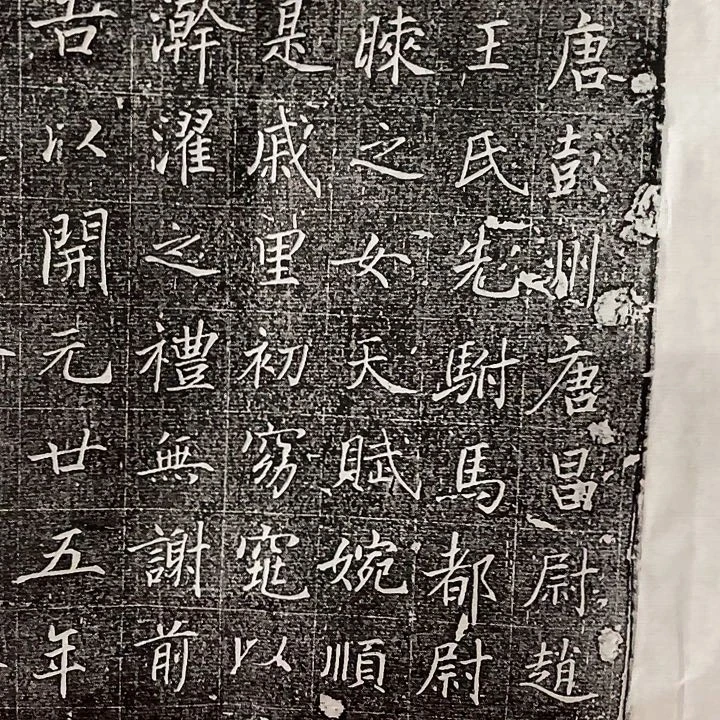 唐彭州唐昌尉趙
王氏先駙馬都尉
暕之女天賦婉順
是戚里初窈窕以
澣濯之禮無謝前
吾以開元廿五年